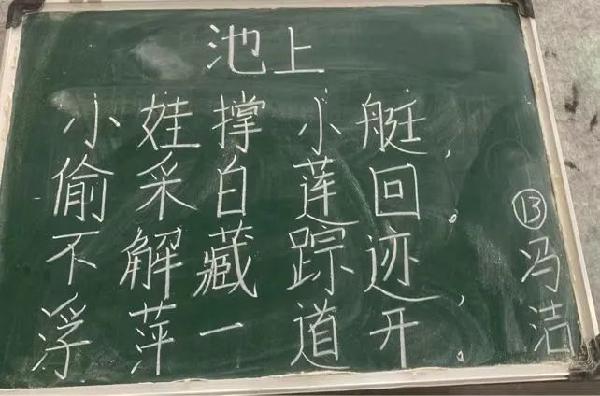 池上
小娃撑小艇，
偷采白莲回。
不解藏踪迹，
浮萍一道开。
⑬冯洁